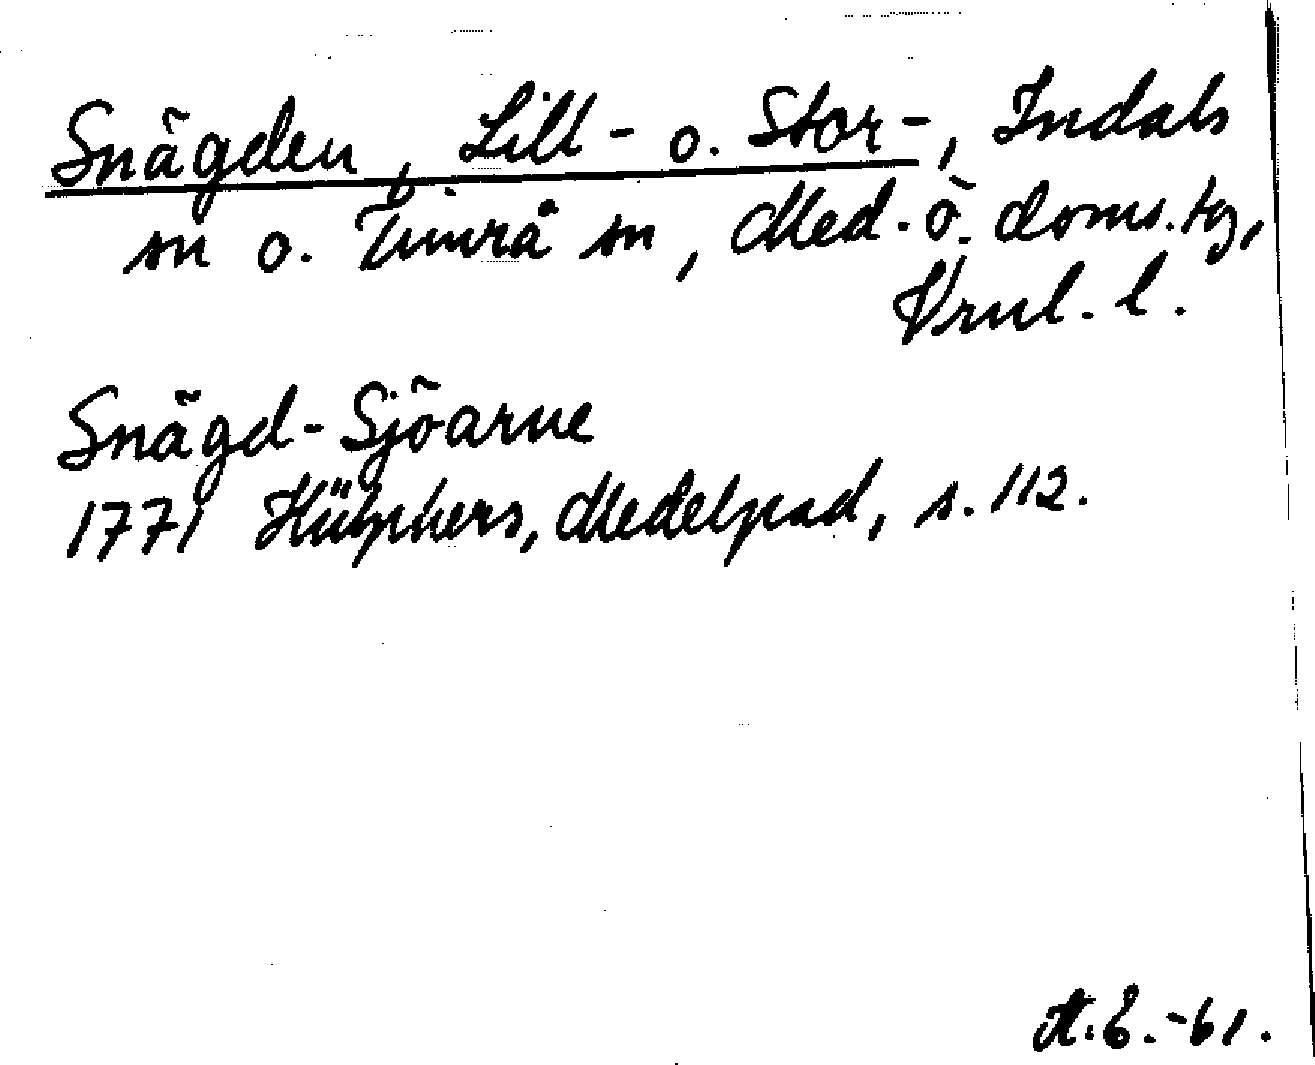 Snägden, Lill- o. Stor-, Indals
sn o. Timrå sn, Med. ö. doms. tg,
Vrnl. l.
Snägd-Sjöarne
1771 Hülphers, Medelpad, s. 112.
A.E.-61.